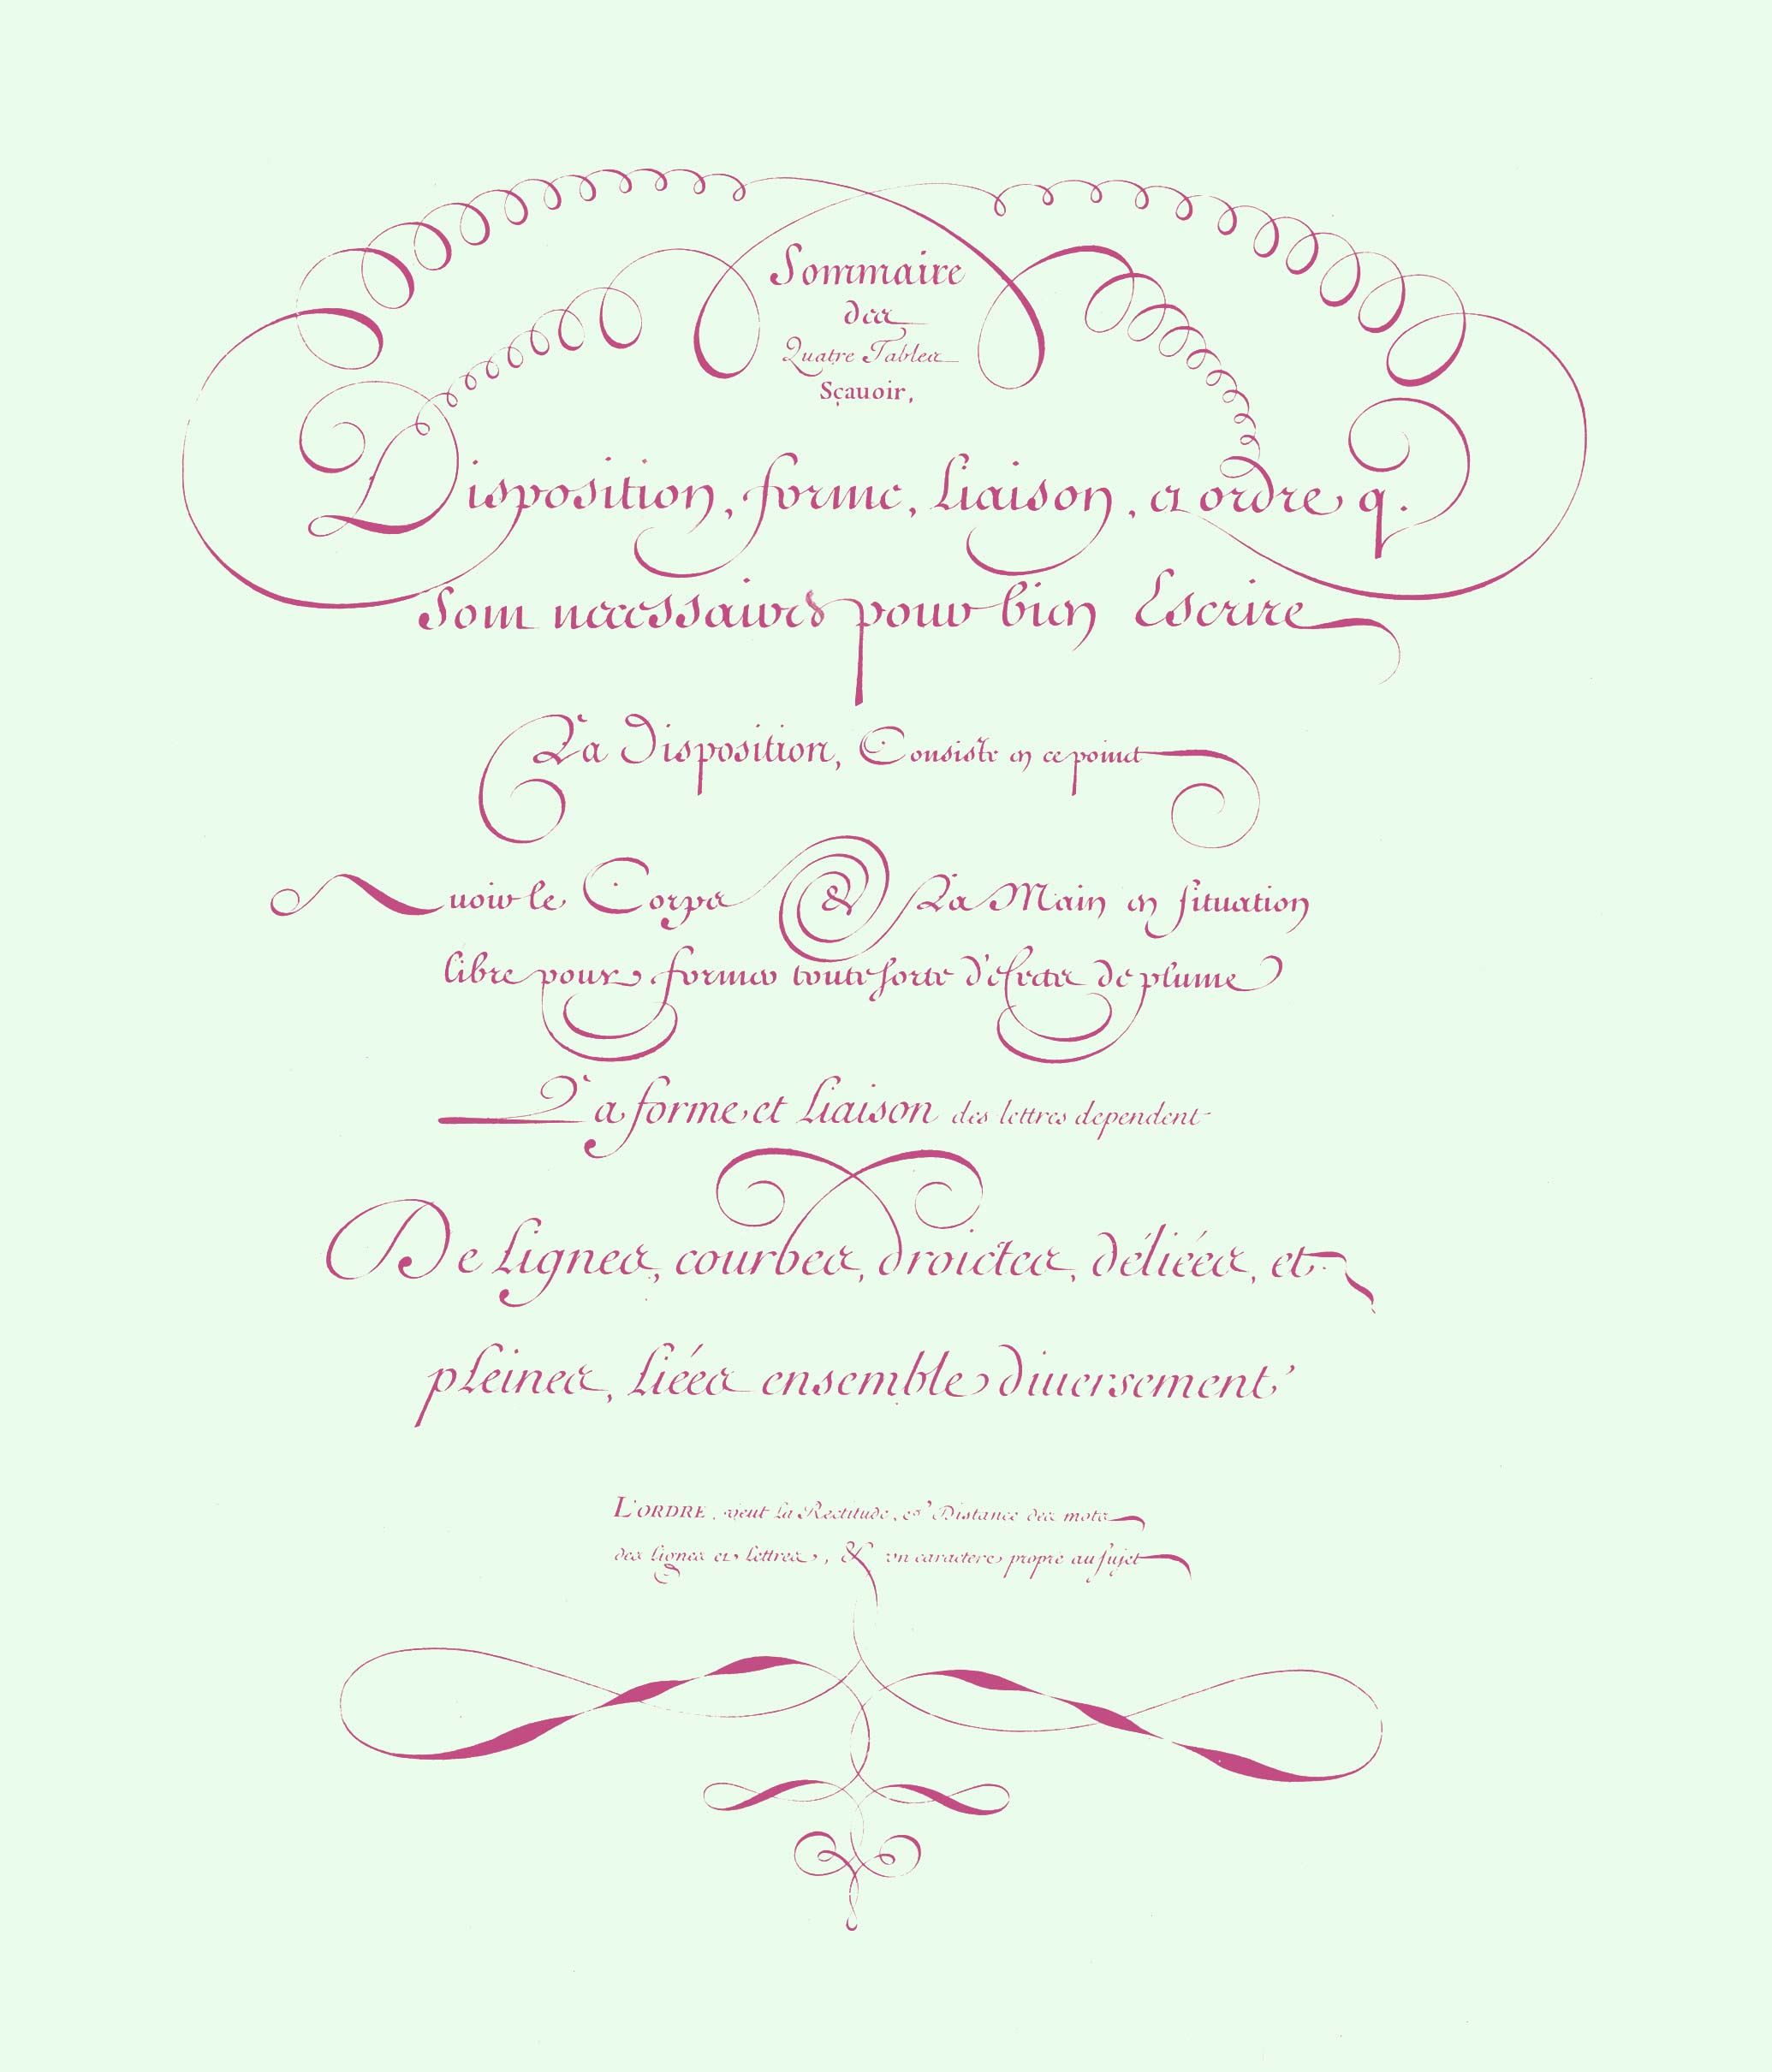 Sommaire
des
Quatre Tables
Sçauoir,
Disposition, forme, liaison, et ordre q.
Sont necessaires pour bien Escrire
La Disposition, Consiste en ce poinct
Auoir le Corps & La Main en situation
libre pour former toute sorte d'effectz de plume
La forme et liaison des lettres dependent
De lignes, courbes, droictes, déliées, et
pleines, liées ensemble diuersement
L'ORDRE, veut la Rectitude, et Distance des mots
des lignes et lettres, & un caractere propre au sujet